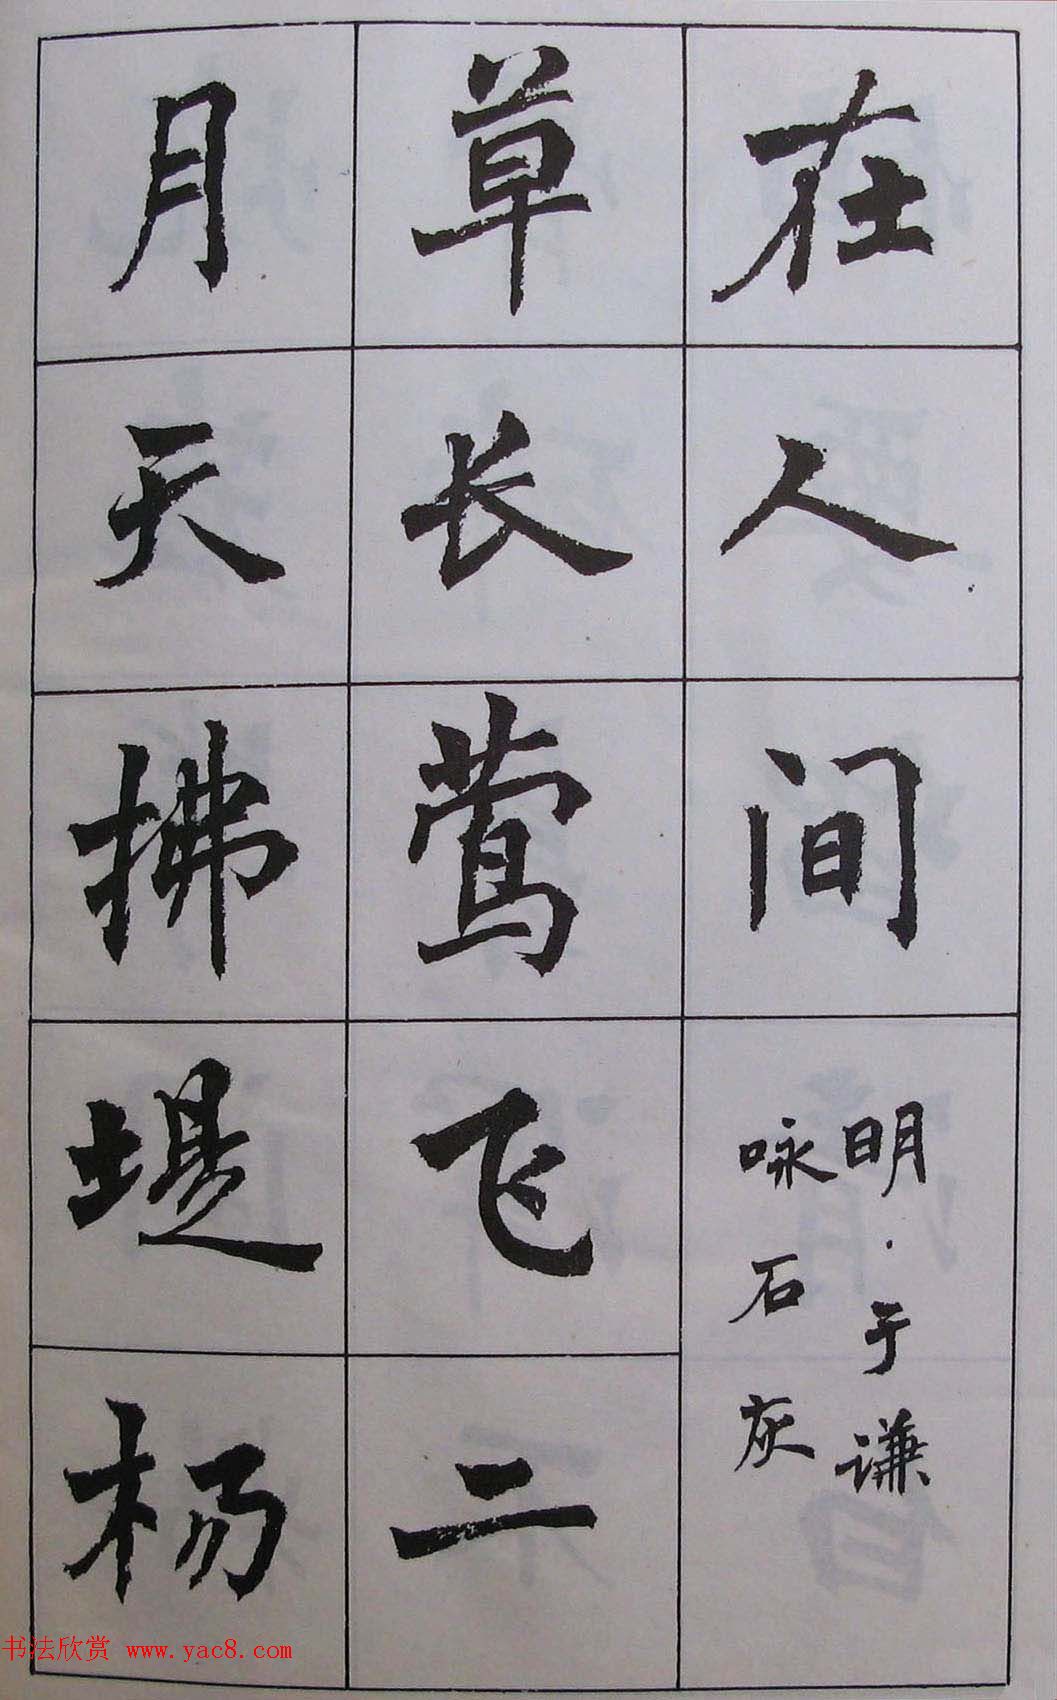 在人间
明·于谦
咏石灰
草长莺飞二
月天拂堤杨
书法欣赏 www.yac8.com